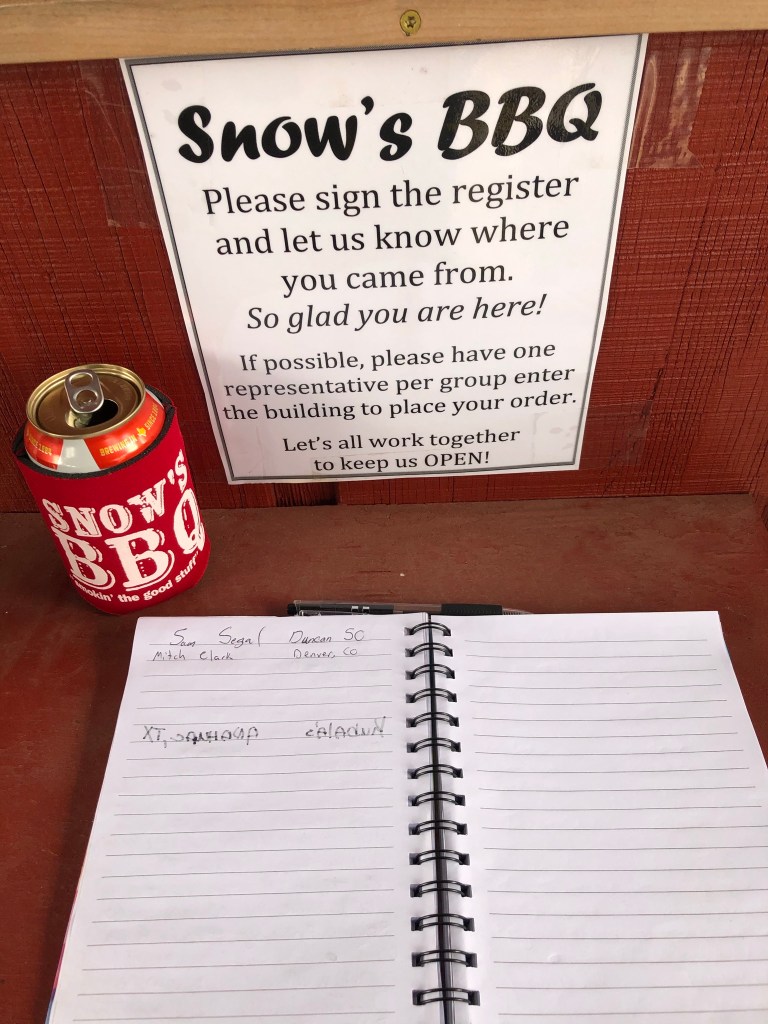 Snow's BBQ
Please sign the register
and let us know where
you came from.
So glad you are here!
If possible, please have one
representative per group enter
the building to place your order.
Let's all work together
to keep us OPEN!
SNOW'S
BBQ
smokin' the good stuff
Sam Segal Duncan SC
Mitch Clark Denver, CO